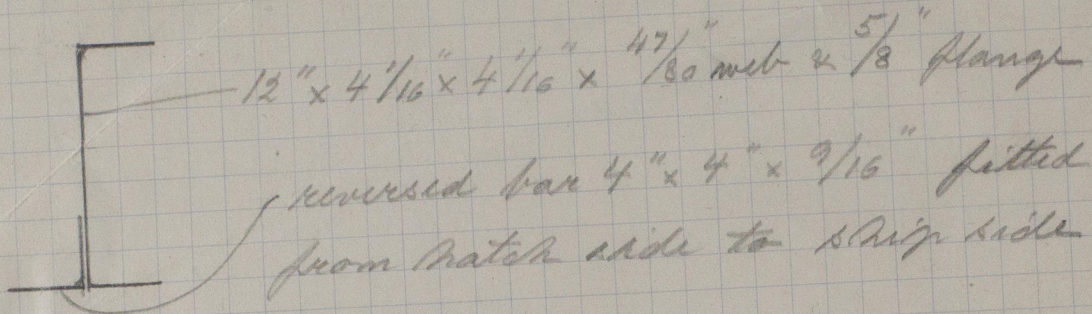 12" x 4 1/16" x 4 1/16" x 47/80" web x 5/8" flange
reversed bar 4" x 4" x 9/16" fitted
from hatch side to ship side